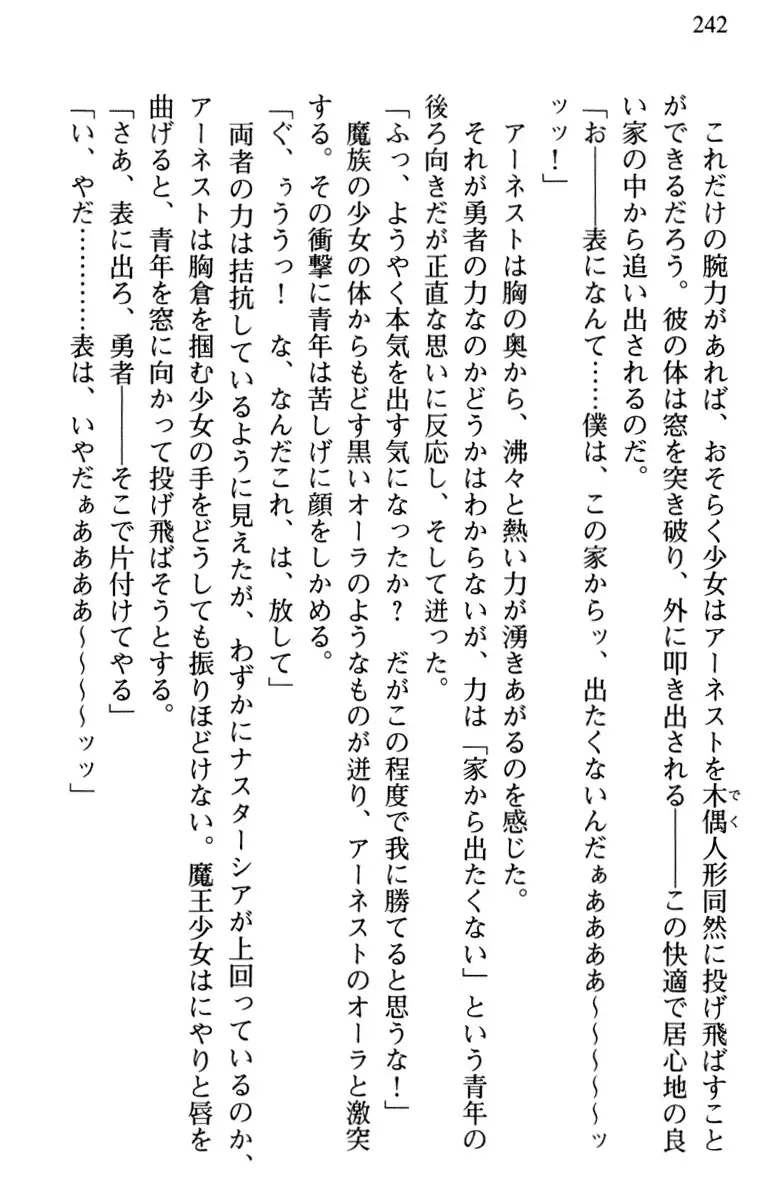 242
これだけの腕力があれば、おそらく少女はアーネストを木偶人形同然に投げ飛ばすこと
でく
ができるだろう。彼の体は窓を突き破り、外に叩き出される――この快適で居心地の良
い家の中から追い出されるのだ。
「お――表になんて……僕は、この家からッ、出たくないんだぁああああ～～～～～ッ
ッッ！」
アーネストは胸の奥から、沸々と熱い力が湧きあがるのを感じた。
それが勇者の力なのかどうかはわからないが、力は「家から出たくない」という青年の
後ろ向きだが正直な思いに反応し、そして迸った。
「ふっ、ようやく本気を出す気になったか？　だがこの程度で我に勝てると思うな！」
魔族の少女の体からもどす黒いオーラのようなものが迸り、アーネストのオーラと激突
する。その衝撃に青年は苦しげに顔をしかめる。
「ぐ、ぅううっ！　な、なんだこれ、は、放して」
両者の力は拮抗しているように見えたが、わずかにナスターシアが上回っているのか、
アーネストは胸倉を掴む少女の手をどうしても振りほどけない。魔王少女はにやりと唇を
曲げると、青年を窓に向かって投げ飛ばそうとする。
「さあ、表に出ろ、勇者――そこで片付けてやる」
「い、やだ…………表は、いやだぁああああ～～～～ッッ」